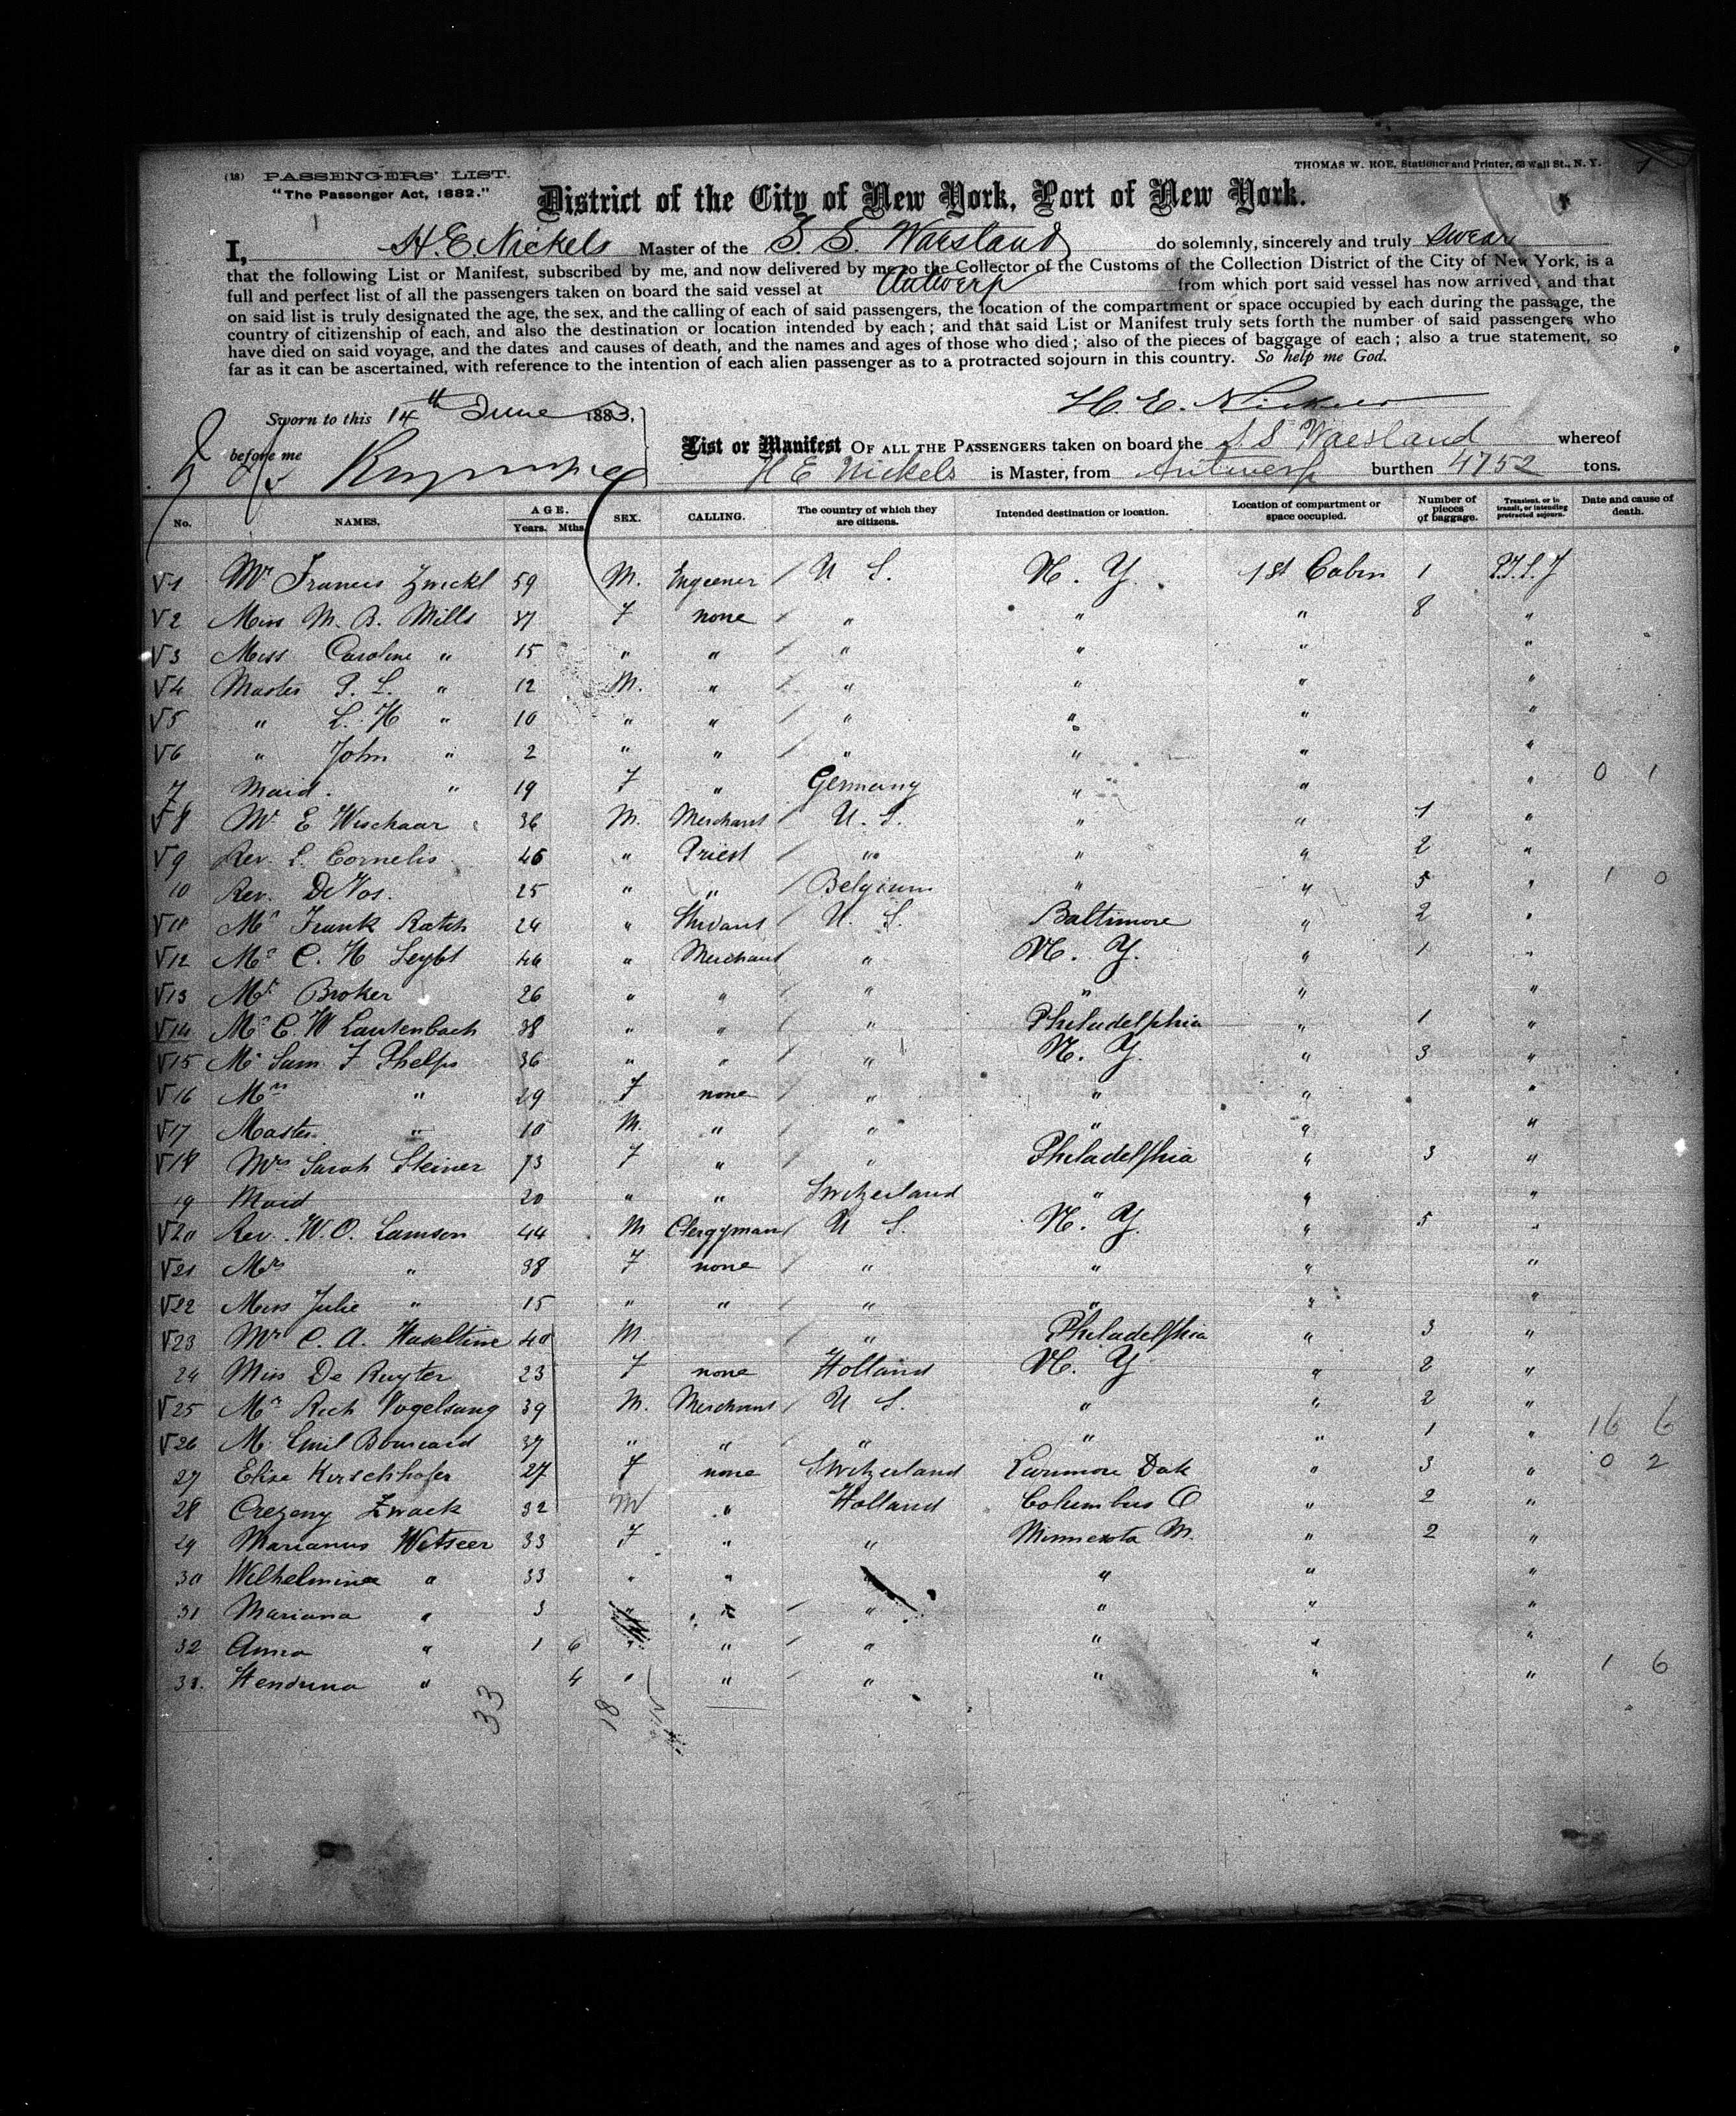 (18) PASSENGERS' LIST.
"The Passenger Act, 1882."
THOMAS W. ROE, Stationer and Printer, Wall St., N. Y.
District of the City of New York, Port of New York.
I, H. E. Nickels Master of the S. S. Waesland do solemnly, sincerely and truly swear
that the following List or Manifest, subscribed by me, and now delivered by me to the Collector of the Customs of the Collection District of the City of New York, is a
full and perfect list of all the passengers taken on board the said vessel at Antwerp from which port said vessel has now arrived; and that
on said list is truly designated the age, the sex, and the calling of each of said passengers, the location of the compartment or space occupied by each during the passage, the
country of citizenship of each, and also the destination or location intended by each; and that said List or Manifest truly sets forth the number of said passengers who
have died on said voyage, and the dates and causes of death, and the names and ages of those who died; also of the pieces of baggage of each; also a true statement, so
far as it can be ascertained, with reference to the intention of each alien passenger as to a protracted sojourn in this country. So help me God.
Sworn to this 14th June 1883, H. E. Nickels
before me
List or Manifest OF ALL THE PASSENGERS taken on board the S.S Waesland whereof
H E Nickels is Master, from Antwerp burthen 4752 tons.
No. NAMES. AGE. Years. Mths. SEX. CALLING. The country of which they are citizens. Intended destination or location. Location of compartment or space occupied. Number of pieces of baggage. Transient, or in transit, or intending protracted sojourn. Date and cause of death.
√1 Mr Francis Zwickl 59 M. Engeener / U S. N. Y. 1st Cabin 1
√2 Miss M. B. Mills 37 F none / " " " 8 "
√3 Miss Caroline " 15 " " / " " " "
√4 Master P. L. " 12 M. " / " " " "
√5 " L. H " 10 " " / " " " "
√6 " John " 2 " " / " " " "
7 Maid. " 19 F " Germany " " " 0 1
√8 Mr E Wischaar 36 M. Merchant / U. S. " " 1 "
√9 Rev. L. Cornelis 46 " Priest / " " " 2 "
10 Rev. De Vos. 25 " " / Belgium " " 5 " 1 0
√11 Mr Frank Ratch 24 " / U. S. Baltimore " 2 "
√12 Mr C. H Leybt 46 " Merchant " N. Y. " 1 "
√13 Mr Broker 26 " " / " " " "
√14 Mr C. W Lautenbach 38 " " / " Philadelphia " 1 "
√15 Mr Sam F Phelps 36 " " / " N. Y. " 3 "
√16 Mrs " 29 F none / " " " "
√17 Master " 10 M. " / " " " "
√18 Mrs Sarah Steiner 73 F " / " Philadelphia " 3 "
19 Maid 20 " " Switzerland " " "
√20 Rev. W. O. Lamson 44 M Clergyman / U S. N. Y. " 5 "
√21 Mrs " 38 F none / " " " "
√22 Miss Julie " 15 " " / " " " "
√23 Mr C. A. Haseltine 40 M. / " Philadelphia " 3 "
24 Miss De Ruyter 23 F none Holland N. Y " 2 "
√25 Mr Rich Vogelsang 39 M. Merchant / U S. " " 2 " 16 6
√26 M. Emil 37 " " " " " 1 "
27 Elise Kirschhofer 27 F none Switzerland Larimore Dak " 3 " 0 2
28 Crezeny Zwack 32 M " Holland Columbus O " 2 "
29 Marianus Witseer 33 F " " Minnesota M. " 2 "
30 Wilhelmina " 33 " " " " " "
31 Mariana " 3 " / " " " "
32 Anna " 1 6 " " / " " " "
33. " 4 " " / " " " " 1 6
33 18